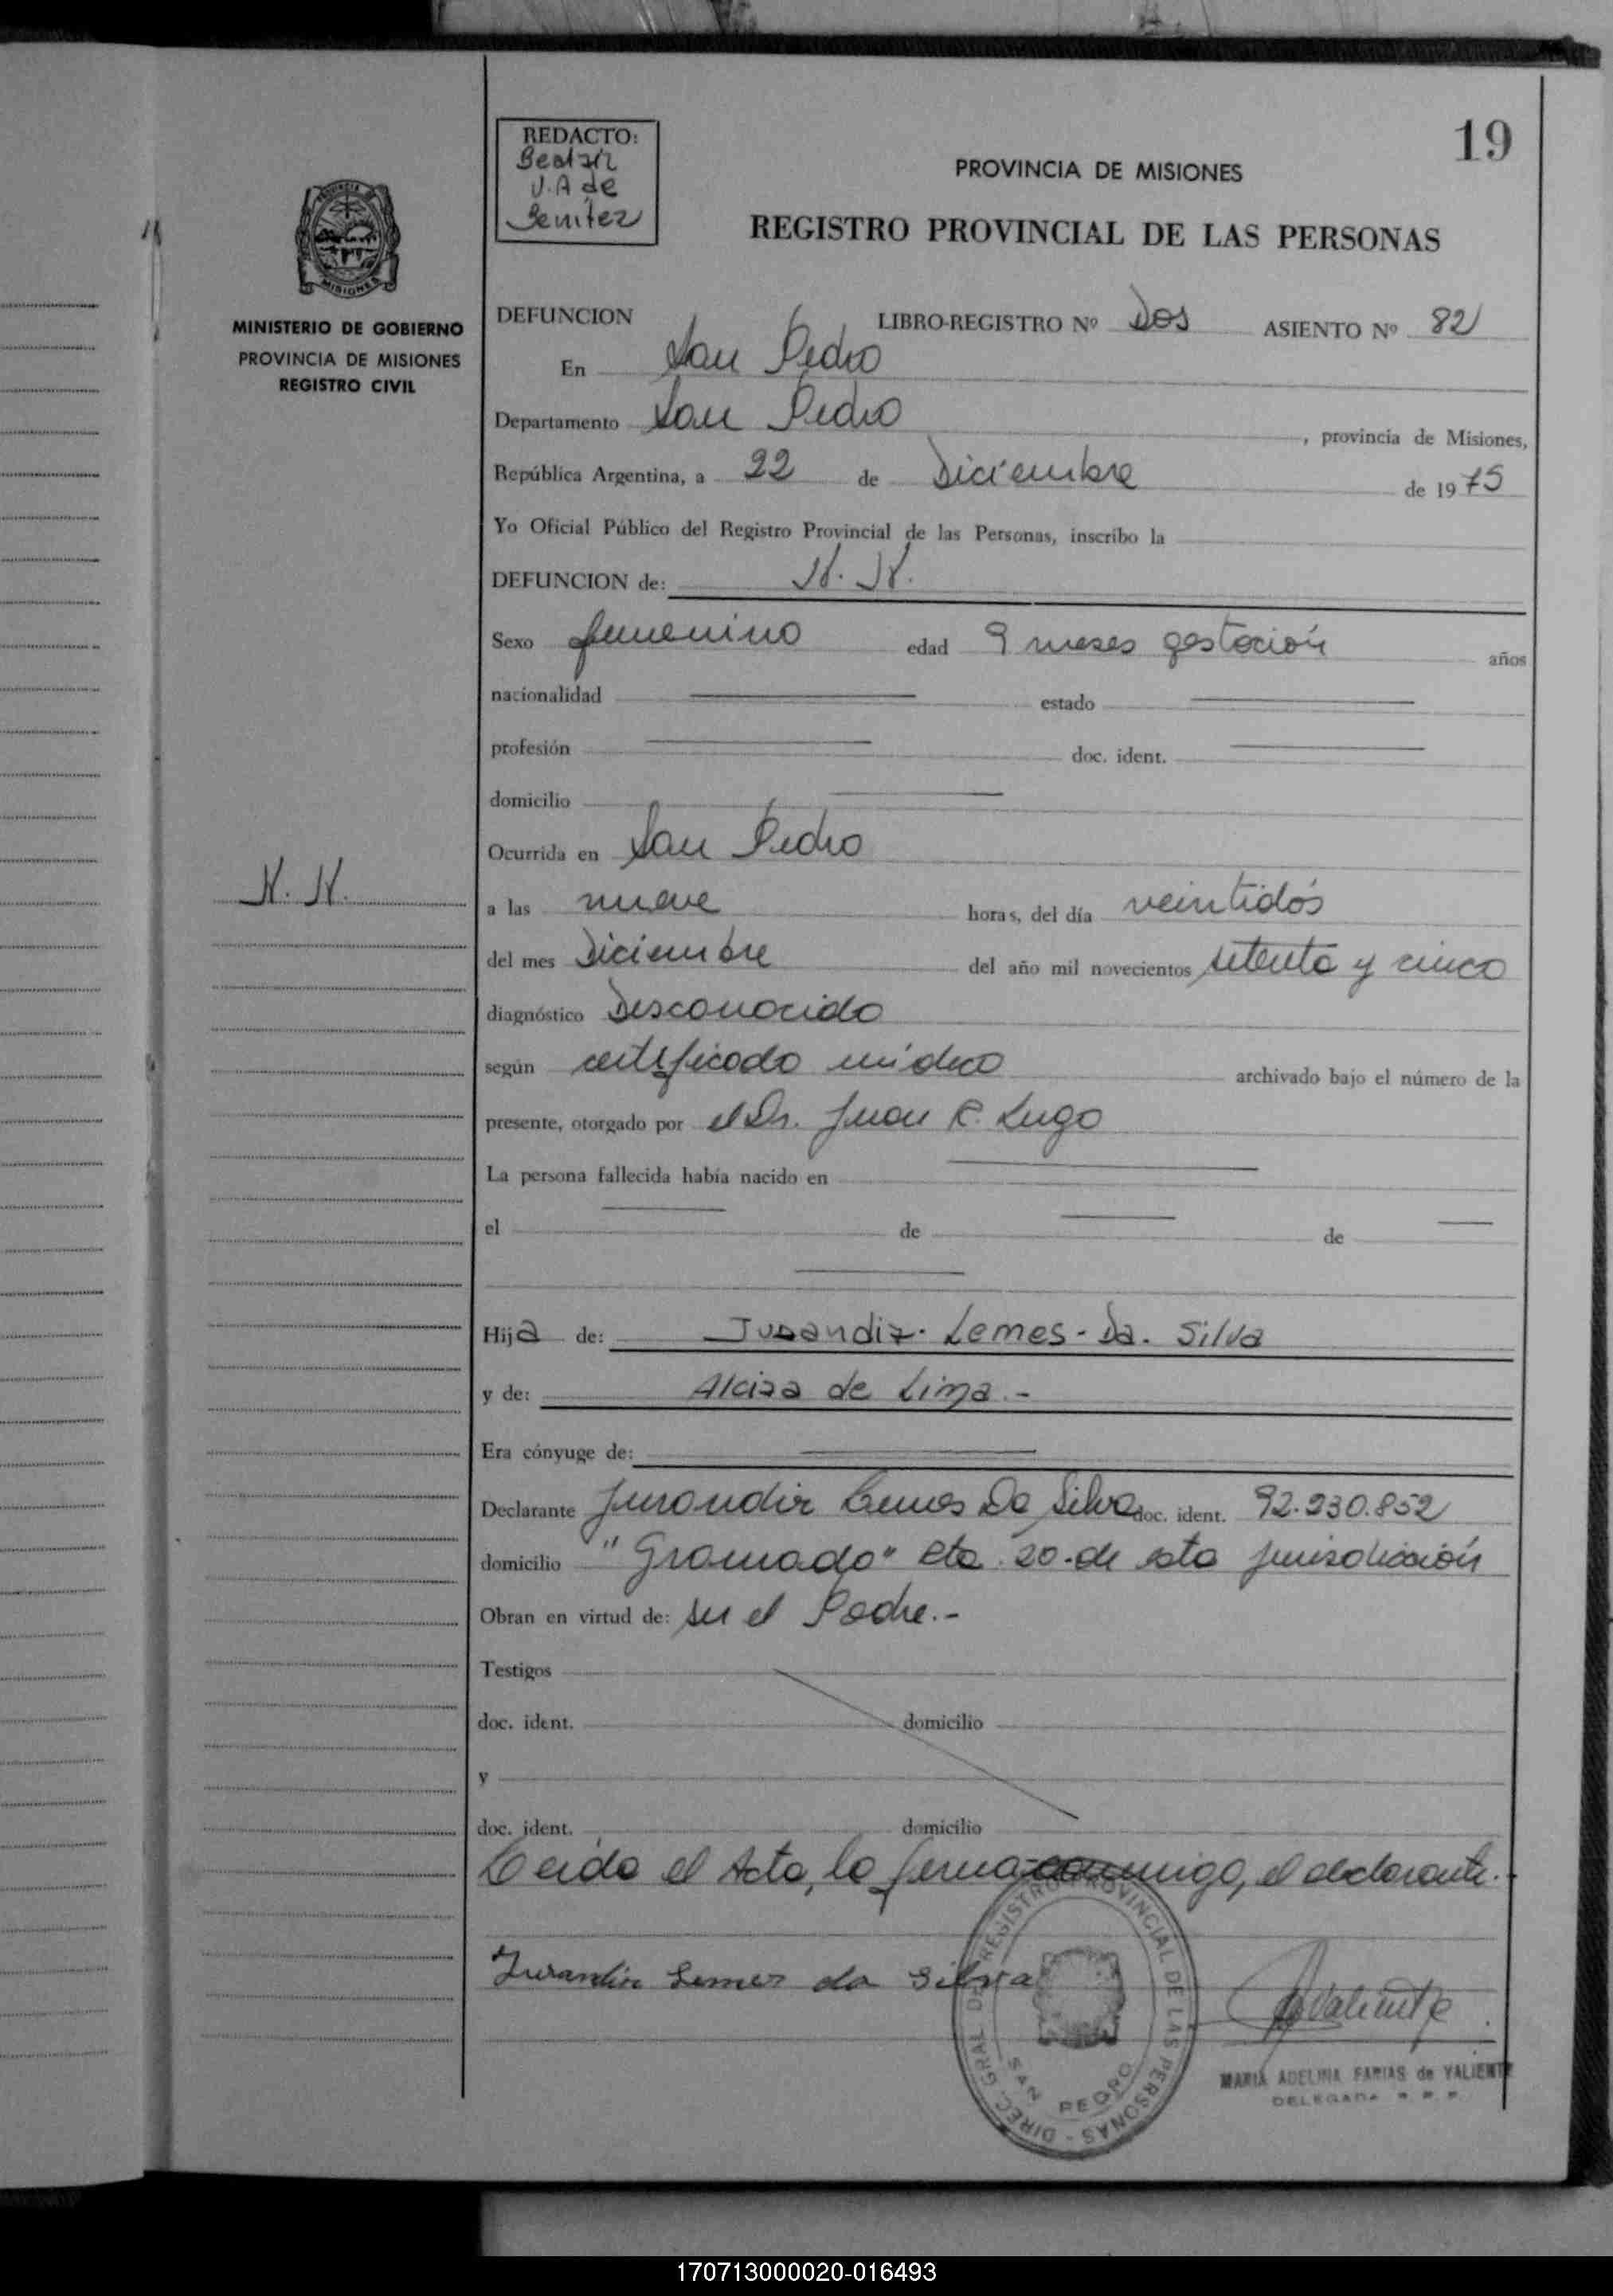 19
REDACTO:
Beatriz
V. A de
Benitez
PROVINCIA DE MISIONES
REGISTRO PROVINCIAL DE LAS PERSONAS
MINISTERIO DE GOBIERNO
PROVINCIA DE MISIONES
REGISTRO CIVIL
DEFUNCION LIBRO-REGISTRO Nº Dos ASIENTO Nº 82
En San Pedro
Departamento San Pedro , provincia de Misiones,
República Argentina, a 22 de Diciembre de 1975
Yo Oficial Público del Registro Provincial de las Personas, inscribo la
DEFUNCION de: N. N.
Sexo femenino edad 9 meses gestación años
nacionalidad estado
profesión doc. ident.
domicilio
Ocurrida en San Pedro
N. N.
a las nueve horas, del día veintidós
del mes Diciembre del año mil novecientos setenta y cinco
diagnóstico Desconocido
según certificado médico archivado bajo el número de la
presente, otorgado por el Dr. Juan R. Lugo
La persona fallecida había nacido en
el de de
Hija de: Jurandir Lemes - Da. Silva
y de: Alcira de Lima.-
Era cónyuge de:
Declarante Jurandir Lemes Da Silva doc. ident. 92.230.852
domicilio "Gramado" lte 20-de esta jurisdicción
Obran en virtud de: ser el Padre.-
Testigos
doc. ident. domicilio
y
doc. ident. domicilio
Leida el Acta, la firma conmigo, el declarante.-
Jurandir Lemes da Silva
Valiente
DIREC. GRAL DEL REGISTRO PROVINCIAL DE LAS PERSONAS -
SAN PEDRO
MARIA ADELINA FARIAS de VALIENTE
DELEGADA R. P. P.
170713000020-016493